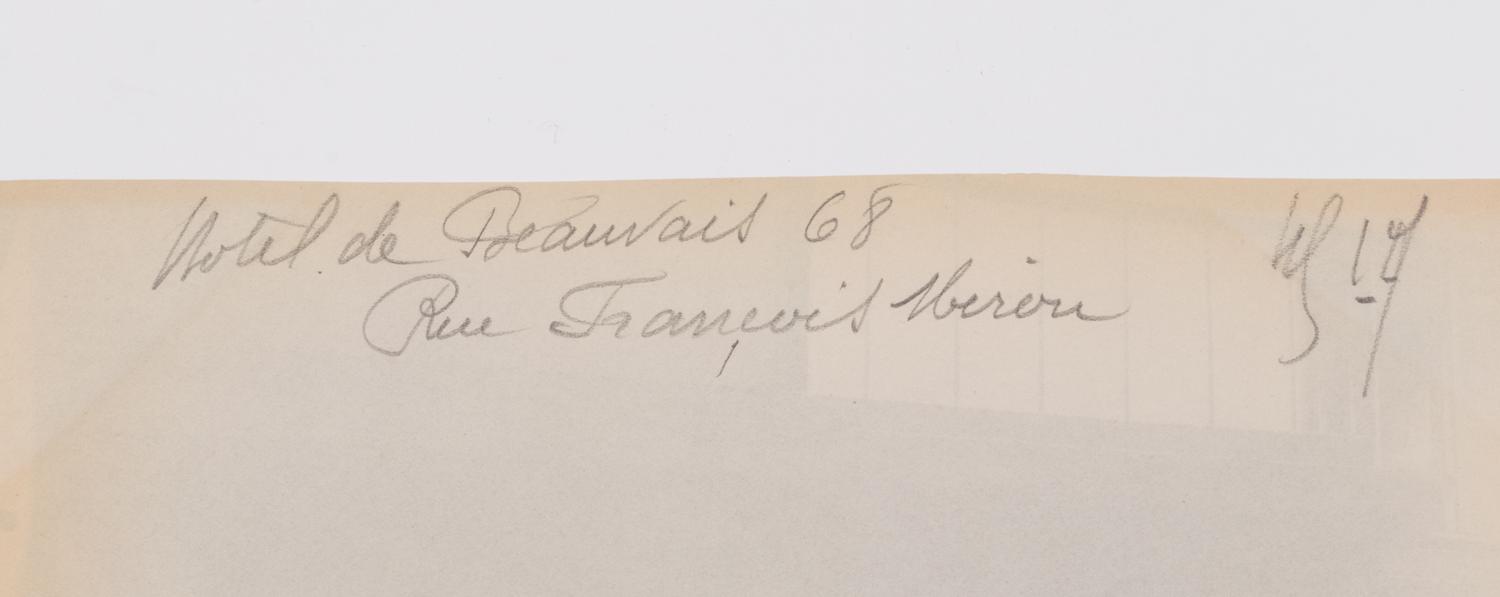 Hotel de Beauvais 68
Rue François Miron